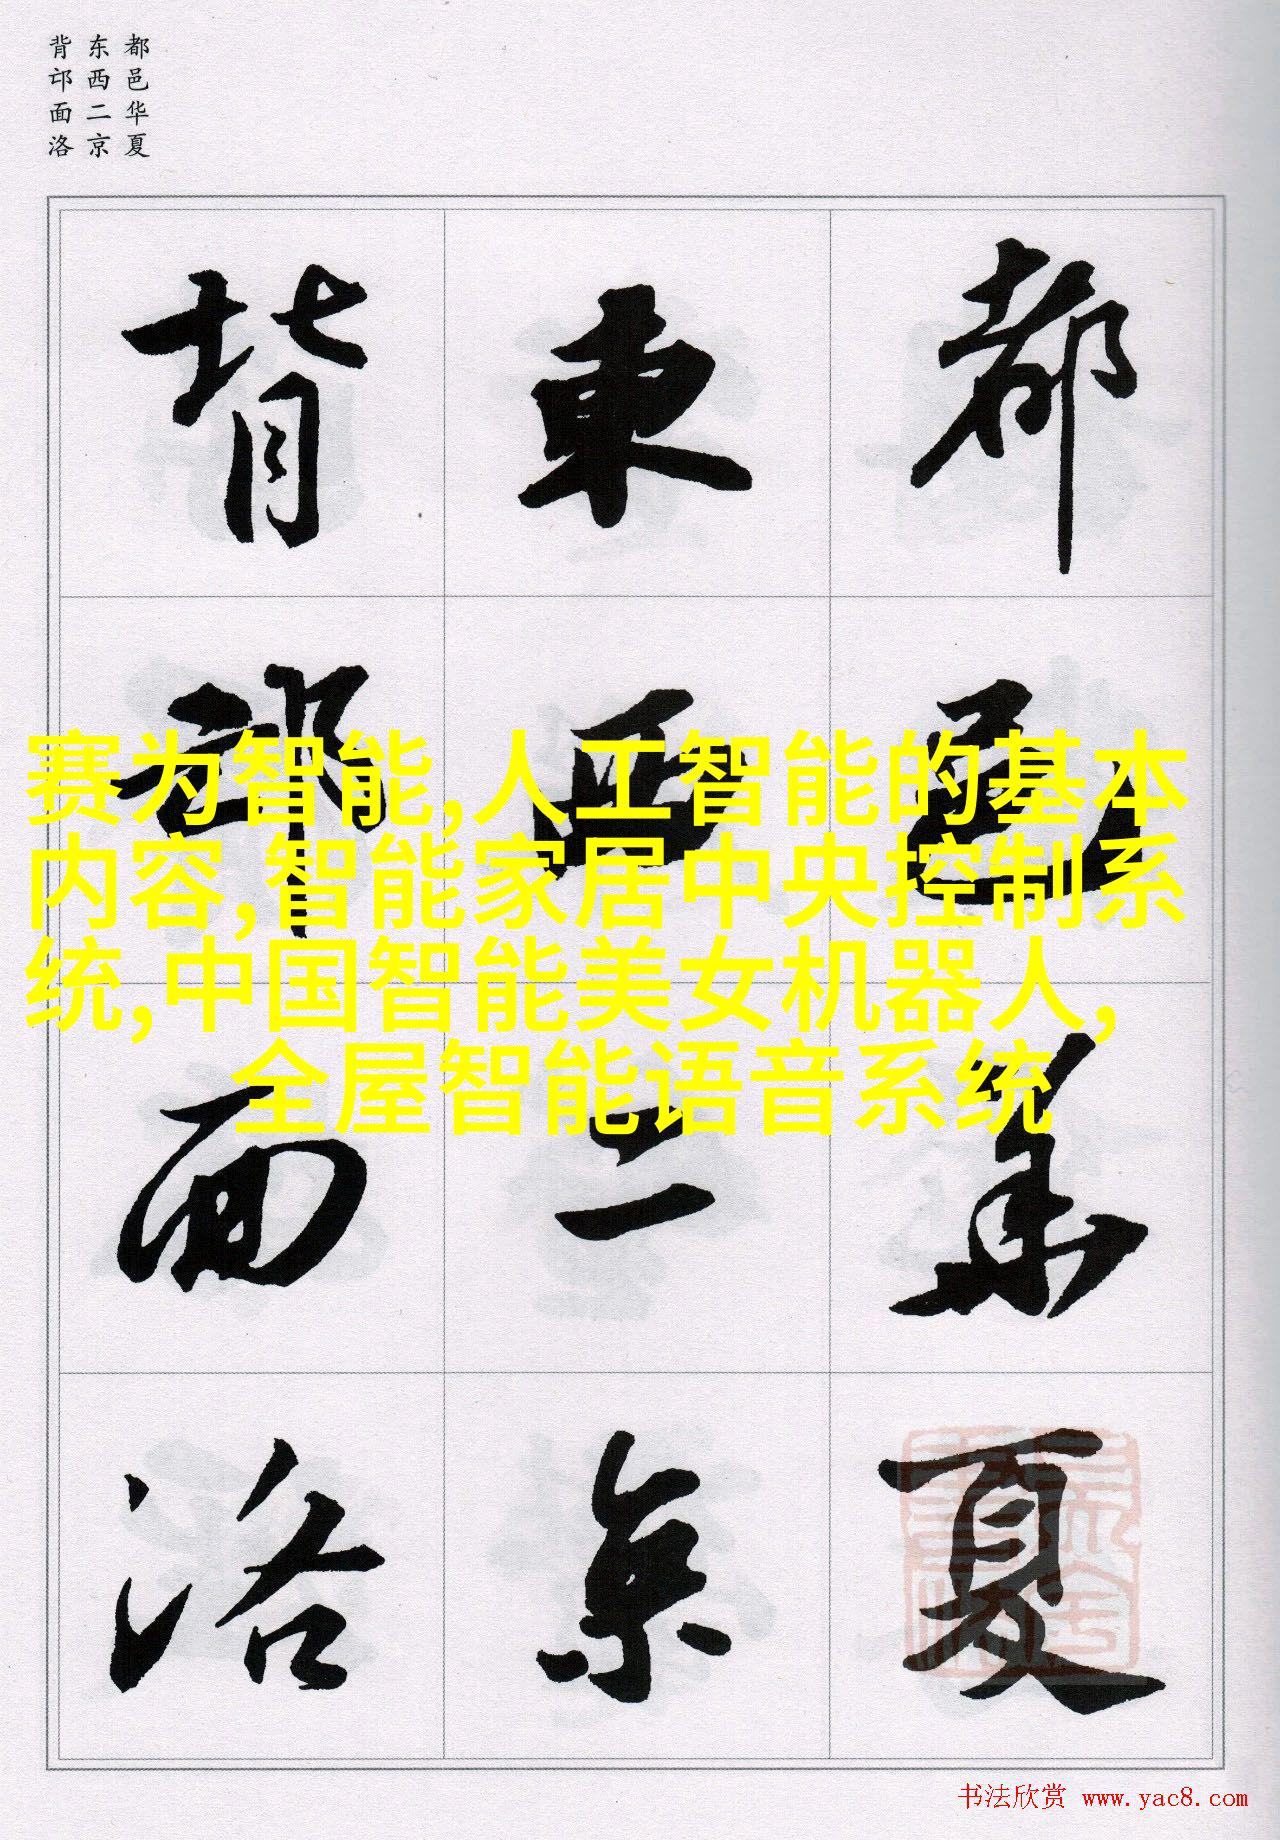 都邑华夏
东西二京
背邙面洛
都邑華夏
東西二京
背邙面洛
赛为智能,人工智能的基本
内容,智能家居中央控制系
统,中国智能美女机器人,
全屋智能语音系统
书法欣赏 www.yac8.com